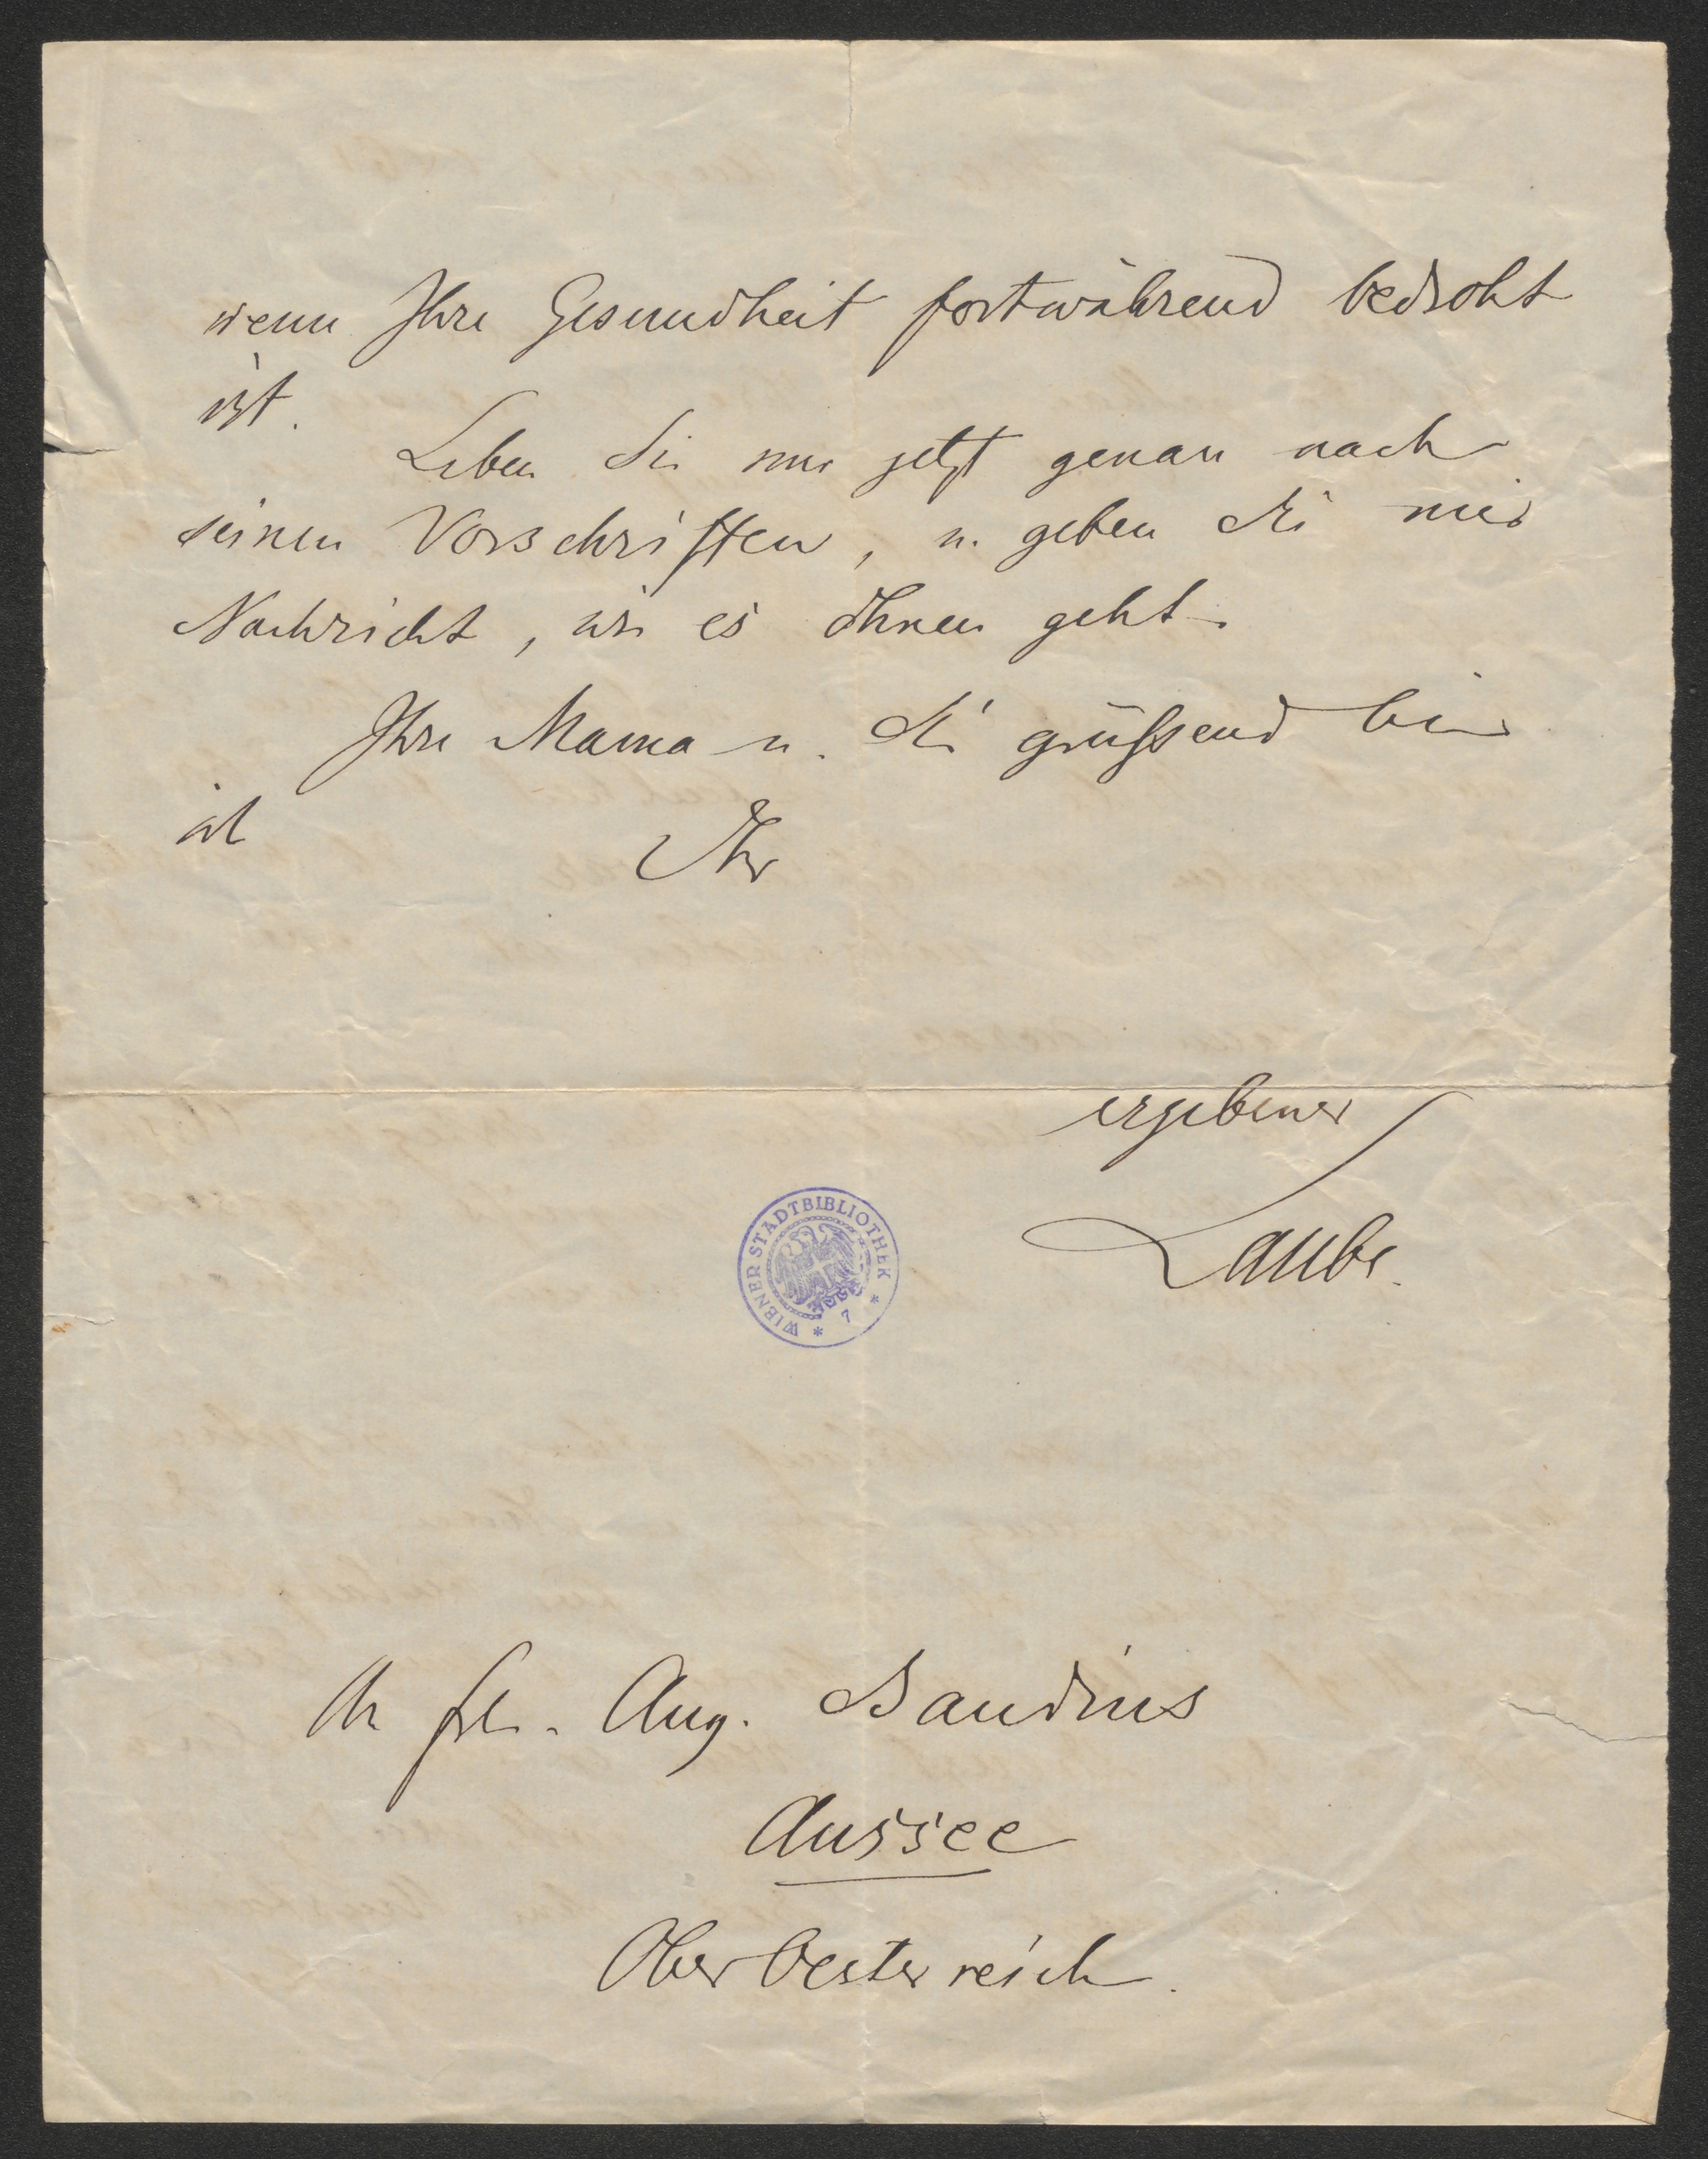 wenn Ihre Gesundheit fortwährend bedroht
ist.
Leben Sie nur jetzt genau nach
seinen Vorschriften, u. geben Sie mir
Nachricht, wie es Ihnen geht.
Ihre Mama u. Sie grüßend bin
ich Ihr
ergebener
Laube.
WIENER STADTBIBLIOTHEK * 7 *
Frl. Aug. Baudius
Aussee
Ober Oesterreich.